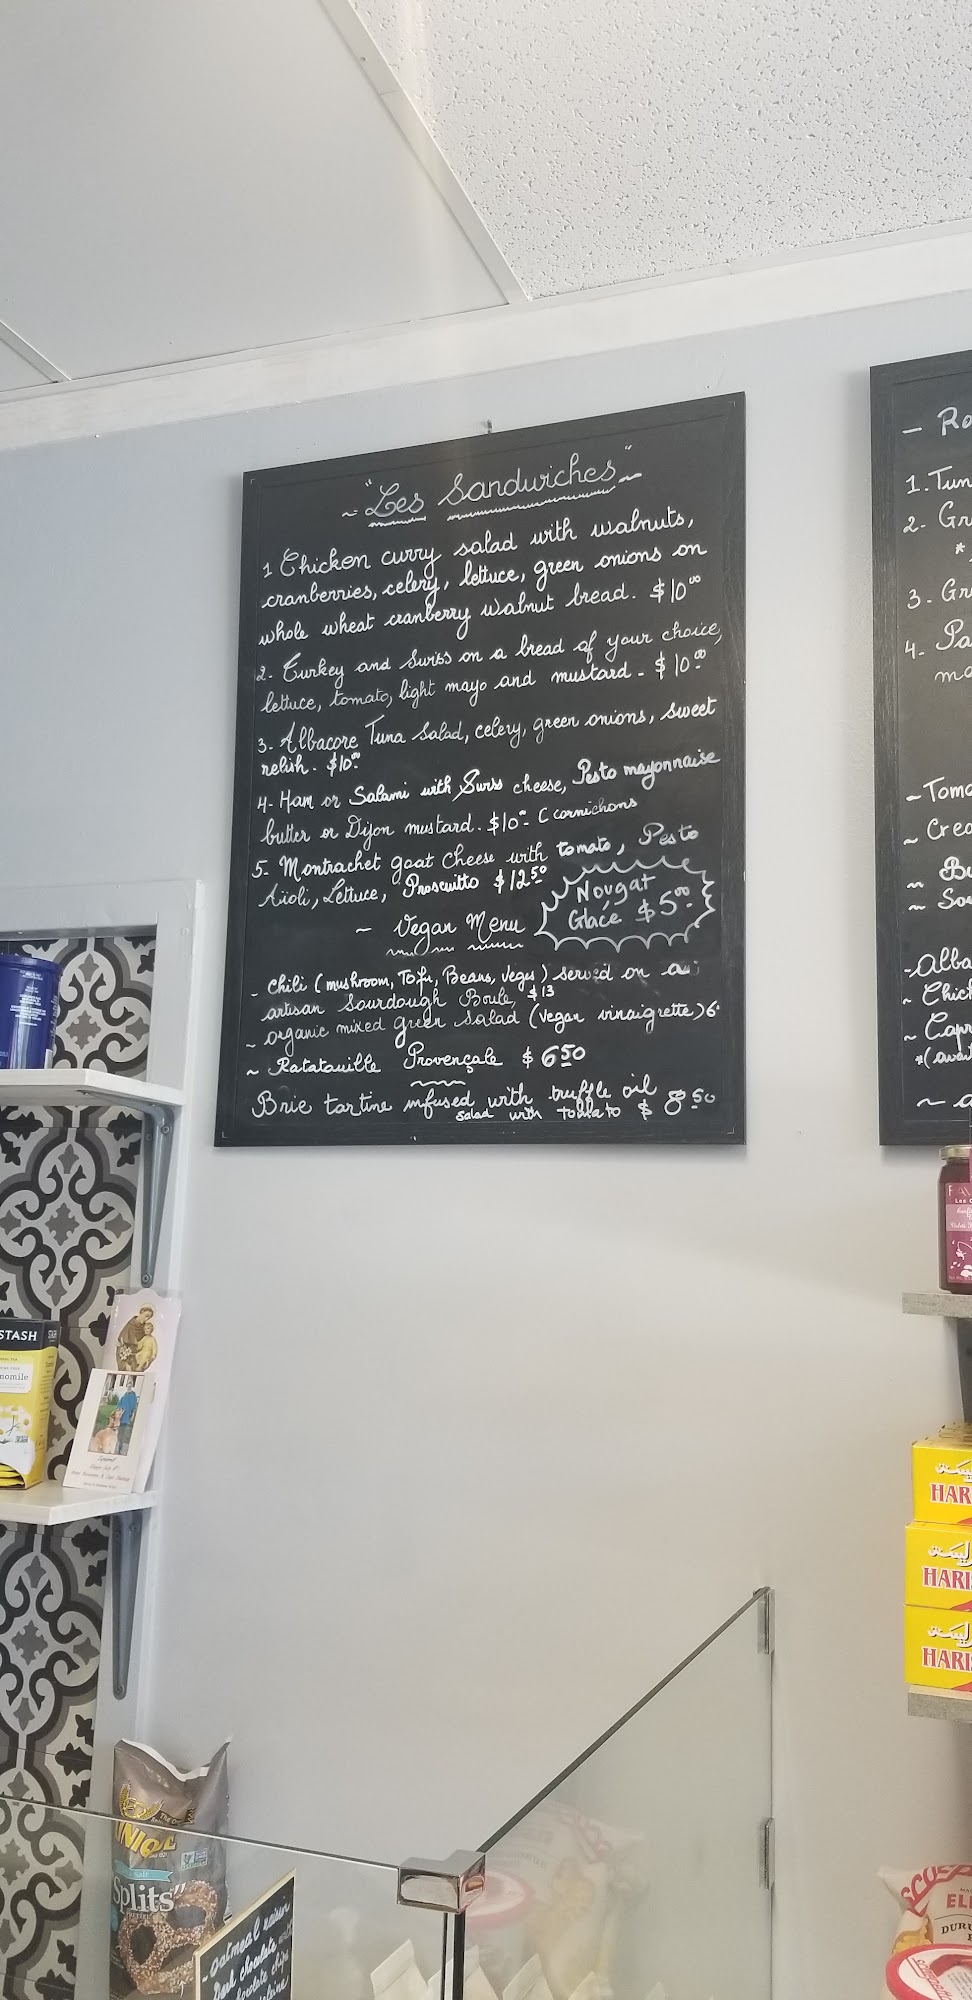 ~ "Les Sandwiches" ~
1 Chicken curry salad with walnuts,
cranberries, celery, lettuce, green onions on
whole wheat cranberry walnut bread. $10.00
2- Turkey and Swiss on a bread of your choice,
lettuce, tomato, light mayo and mustard - $10.00
3- Albacore Tuna Salad, celery, green onions, sweet
relish. $10.00
4- Ham or Salami with Swiss cheese, Pesto mayonnaise
butter or Dijon mustard. $10- C cornichons
5- Montrachet goat cheese with tomato, Pesto
Aïoli, Lettuce, Proscuitto $12.50
Nougat
Glacé $5.00
~ Vegan Menu
- Chili (mushroom, Tofu, Beans, Vegys) served on a
artisan Sourdough Boule, $13
~ organic mixed green salad (vegan vinaigrette) 6.
~ Ratatouille Provençale $6.50
Brie tartine infused with truffle oil
salad with tomato $8.50
1. Tun
2- Gr
*
3- Gr
4- Pa
~ Tom
~ Crea
~ Bu
~ Sou
- alba
~ Chic
~ Capr
~ a
STASH
HARI
HARI
HARI
Splits"
- oatmeal raisin
Dark chocolate
chocolate chips